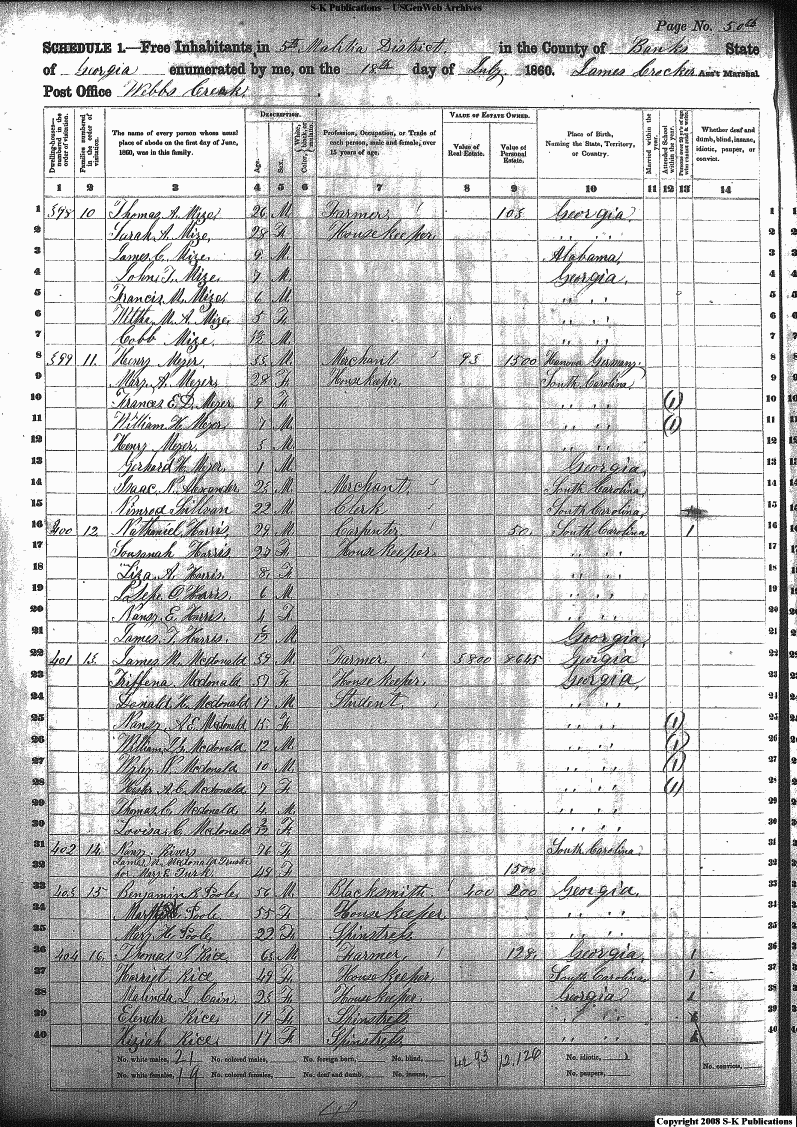 S-K Publications – USGenWeb Archives
Page No. 50th
SCHEDULE 1.—Free Inhabitants in 5th Militia District in the County of Banks State
of Georgia enumerated by me, on the 18th day of July 1860. James Crocker Ass't Marshal
Post Office Webbs Creek
Dwelling-houses—numbered in the order of visitation. Families numbered in the order of visitation. The name of every person whose usual place of abode on the first day of June, 1860, was in this family. DESCRIPTION. Age. Sex. Color, White, black, or mulatto. Profession, Occupation, or Trade of each person, male and female, over 15 years of age. VALUE OF ESTATE OWNED. Value of Real Estate. Value of Personal Estate. Place of Birth, Naming the State, Territory, or Country. Married within the year. Attended School within the year. Persons over 20 y'rs of age who cannot read & write. Whether deaf and dumb, blind, insane, idiotic, pauper, or convict.
1 2 3 4 5 6 7 8 9 10 11 12 13 14
1 398 10 Thomas A. Mize 26 M. Farmer 105 Georgia 1
2 Sarah A. Mize 28 F. Housekeeper " " 2
3 James C. Mize 9 M. Alabama 3
4 John T. Mize 7 M. Georgia 4
5 Francis M. Mize 6 M. " " 5
6 M. A. Mize 5 F. " " 6
7 Cobb Mize M. " " 7
8 399 11 Henry Meyer 35 M. Merchant 93 1500 Hanova Germany 8
9 Mary A. Meyer 28 F. Housekeeper South Carolina 9
10 Frances E. D. Meyer 9 F. " " (1) 10
11 William H. Meyer 7 M. " " (1) 11
12 Henry Meyer 5 M. " " 12
13 Gerhard H. Meyer 1 M. Georgia 13
14 Isaac N. Alexander 25 M. Merchant South Carolina 14
15 Nimrod Sullivan 22 M. Clerk South Carolina 15
16 400 12 Nathaniel Harris 29 M. Carpenter 50 South Carolina 1 16
17 Sousanah Harris 27 F. Housekeeper " " 17
18 Liza A. Harris 8 F. " " 18
19 O. Harris 6 M. " " 19
20 Nansy E. Harris 4 F. " " 20
21 James T. Harris M. Georgia 21
22 401 13 James M. Mcdonald 59 M. Farmer 3800 8645 Georgia 22
23 Triffena Mcdonald 51 F. Housekeeper Georgia 23
24 Donald H. Mcdonald 17 M. Student " " 24
25 Nansy A. E. Mcdonald 15 F. " " (1) 25
26 William Mcdonald 12 M. " " (1) 26
27 Wyly Mcdonald 10 M. " " (1) 27
28 A. C. Mcdonald 7 F. " " (1) 28
29 Thomas C. Mcdonald 4 M. " " 29
30 Lovisa C. Mcdonald F. " " 30
31 402 14 Nansy Rivers 76 F. South Carolina 31
32 James Mcdonald Trustee for Mary E. Turk 48 F. 1500 32
33 403 15 Benjamin R. Poole 56 M. Blacksmith 400 200 Georgia 33
34 Poole 55 F. Housekeeper " " 34
35 Mary H. Poole 22 F. Spinstress " " 35
36 404 16 Thomas S. Rice 65 M. Farmer 128 Georgia 1 36
37 Harriet Rice 49 F. Housekeeper South Carolina 1 37
38 Malinda L. Cain 25 F. Housekeeper Georgia 1 38
39 Elender Rice 19 F. Spinstress " " 39
40 Hiziah Rice 17 F. Spinstress " " 40
No. white males, 21 No. colored males, No. foreign born, No. blind, 4293 12,126 No. idiotic,
No. white females, 19 No. colored females, No. deaf and dumb, No. insane, No. paupers, No. convicts,
Copyright 2008 S-K Publications